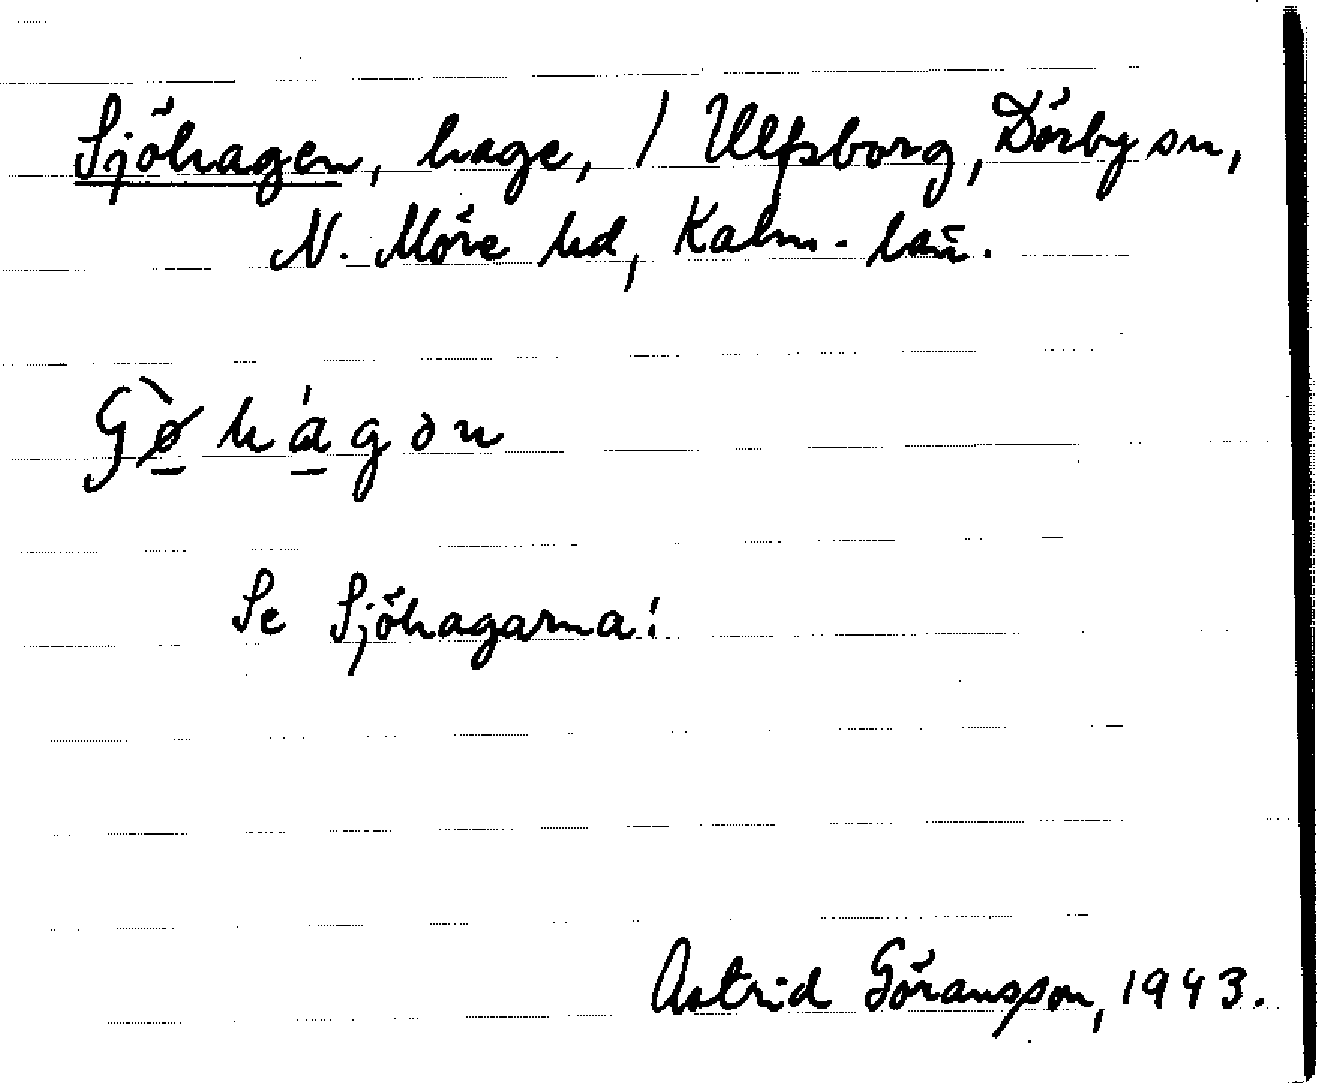 Sjöhagen, hage, / Ulfsborg, Dörby sn,
N. Möre hd, Kalm. län.
Se Sjöhagarna!
Astrid Göransson, 1943.